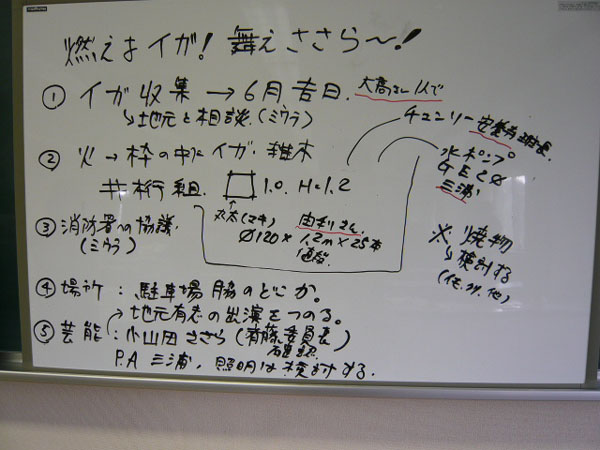 燃えよイガ! 舞えささら〜!
① イガ収集 → 6月吉日. 大高さん 1人で
↳地元と相談.(ミウラ)
チェンソー 安養寺
② 火 → 枠の中にイガ・雑木
水ポンプ
三浦
井桁組. 1.0. H=1.2
丸太(マキ) 由利さん
Ø120×1.2m×25本
③ 消防署への協議.
(ミウラ)
※ 焼物
↳検討する
④ 場所 : 駐車場脇のどこか。
地元有志の出演をつのる。
⑤ 芸能 : 小山田ささら(斉藤委員長)
確認.
P.A 三浦, 照明は検討する.